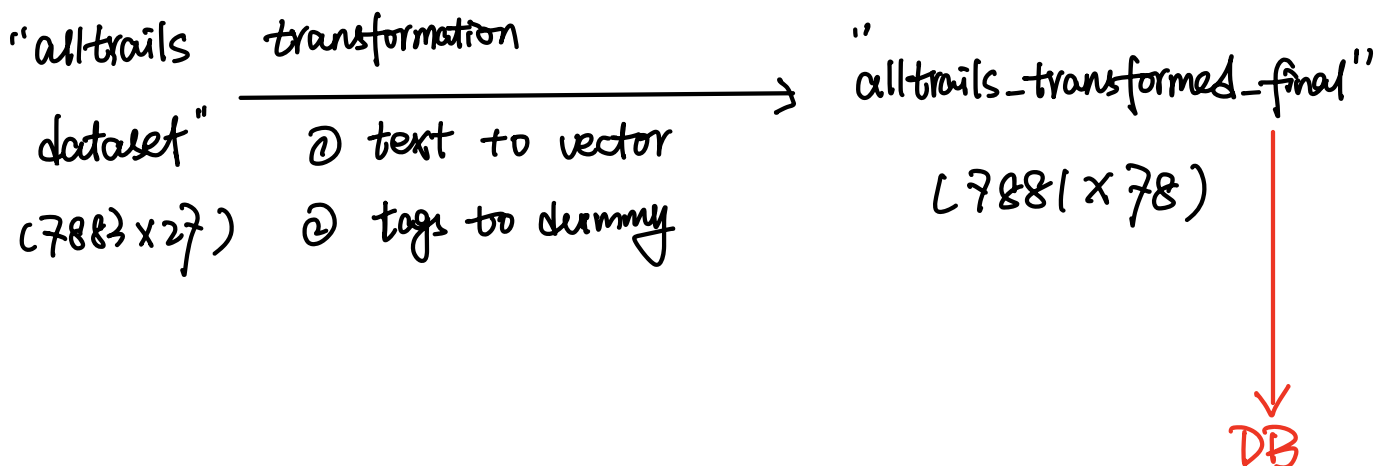 "alltrails
dataset"
(7883 x 27)
transformation
① text to vector
② tags to dummy
"alltrails_transformed_final"
(7881 x 78)
DB